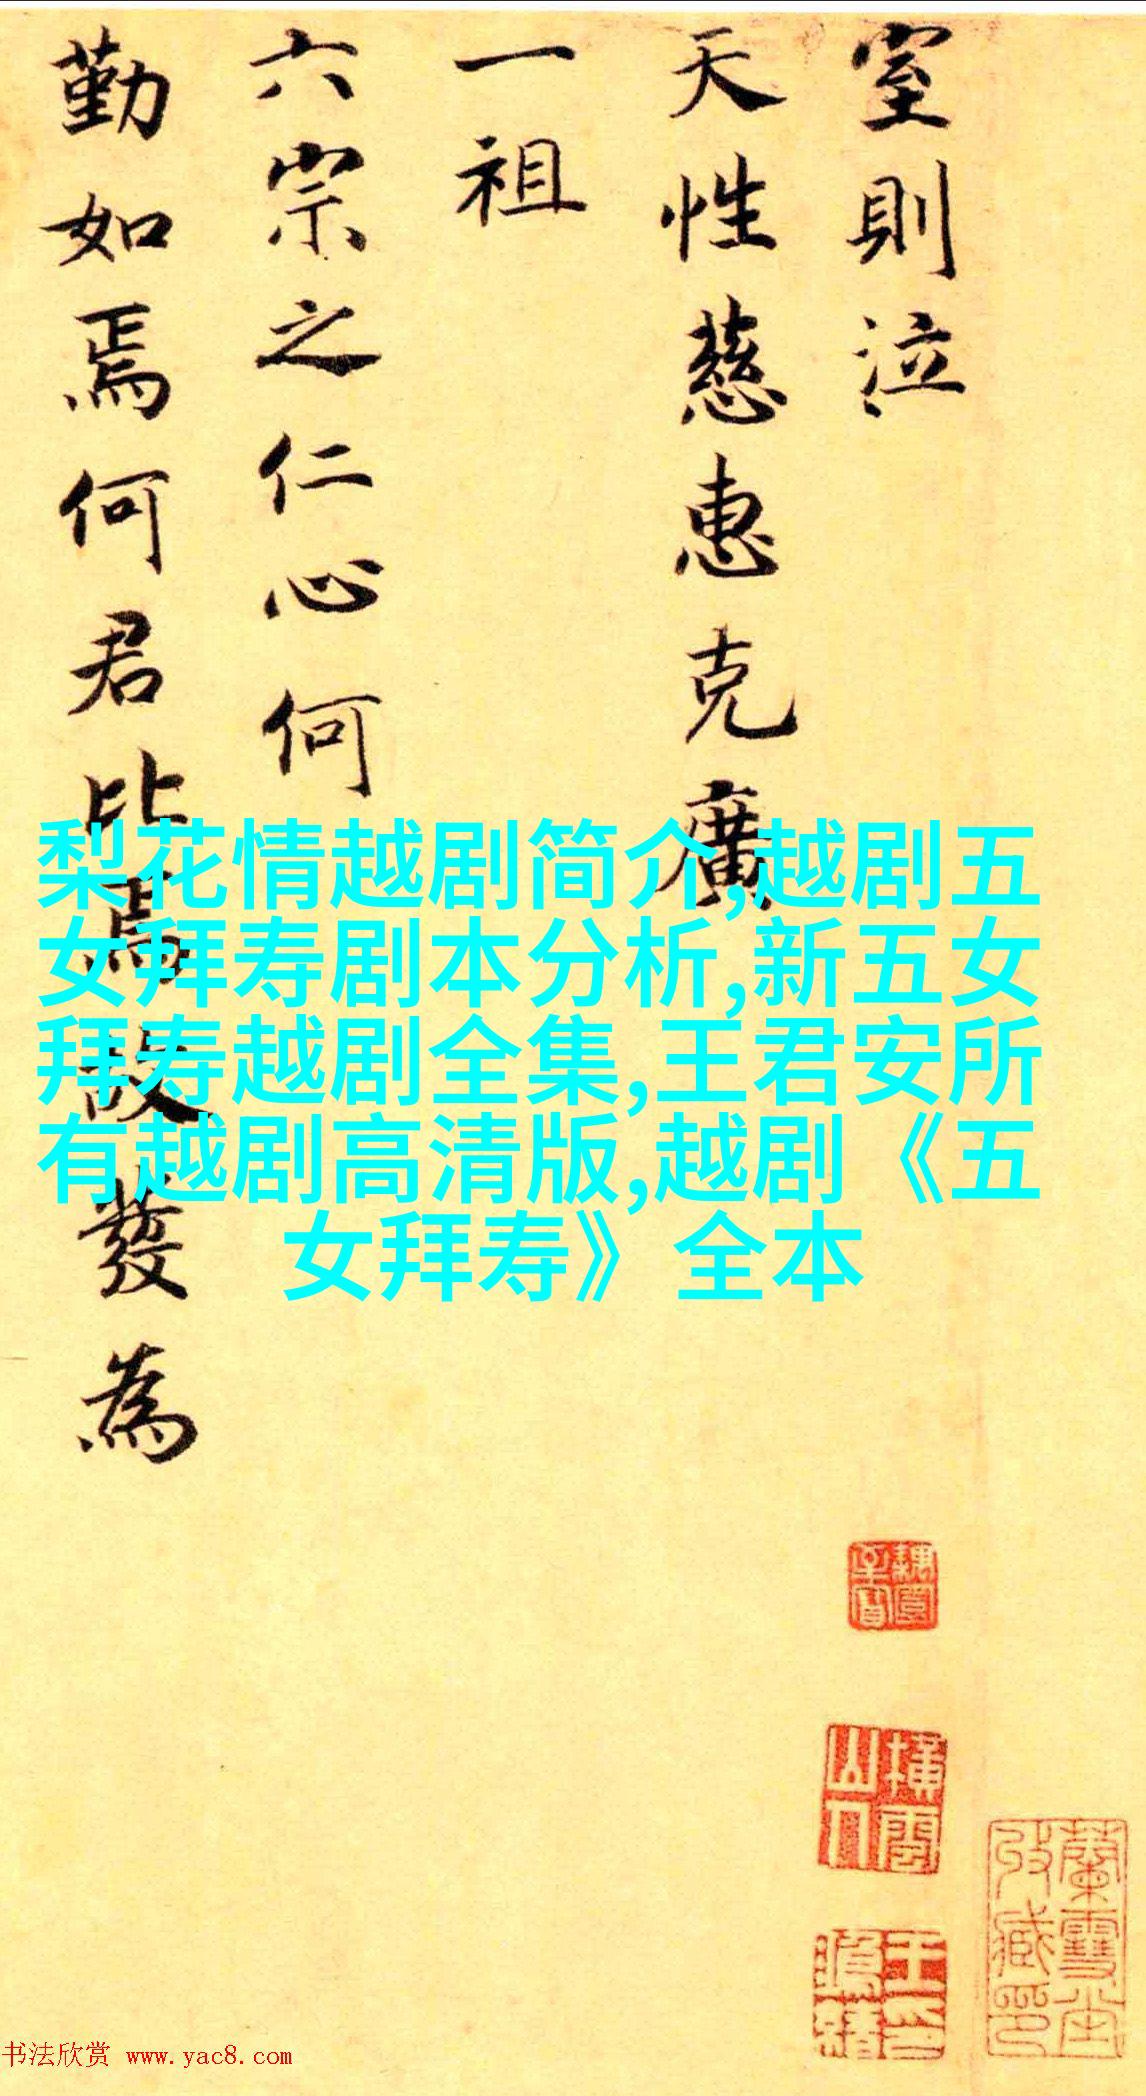 室則泣
天性慈惠克廣
一祖
六宗之仁心何
勤如焉何君比焉故發為
梨花情越剧简介,越剧五
女拜寿剧本分析,新五女
拜寿越剧全集,王君安所
有越剧高清版,越剧《五
女拜寿》全本
橫雲山人
王鴻緒印
蘭雪堂收藏印
书法欣赏 www.yac8.com